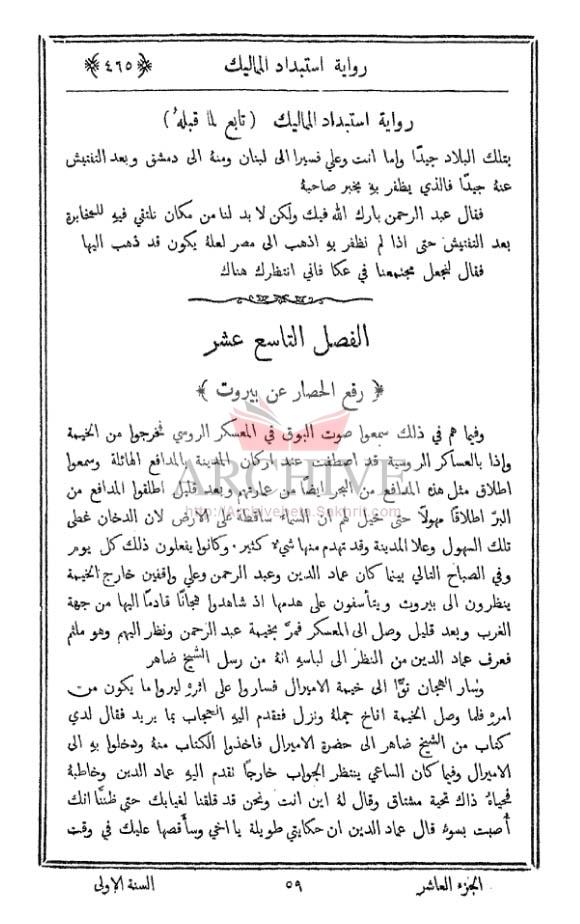 رواية استبداد المماليك ﴿٤٦٥﴾
رواية استبداد المماليك (تابع لما قبلهُ)
بتلك البلاد جيدًا واما انت وعلي فسيرا الى لبنان ومنهُ الى دمشق وبعد التفتيش
عنهُ جيدًا فالذي يظفر بهِ يخبر صاحبهُ
فقال عبد الرحمن بارك الله فيك ولكن لا بد لنا من مكان نلتقي فيهِ للمخابرة
بعد التفتيش حتى اذا لم نظفر بهِ اذهب الى مصر لعلهُ يكون قد ذهب اليها
فقال لنجعل مجتمعنا في عكا فاني انتظرك هناك
الفصل التاسع عشر
﴿ رفع الحصار عن بيروت ﴾
وفيما هم في ذلك سمعوا صوت البوق في المعسكر الروسي فخرجوا من الخيمة
واذا بالعساكر الروسية قد اصطفت عند اركان المدينة بالمدافع الهائلة وسمعوا
اطلاق مثل هذه المدافع من البحر ايضًا من عمارتهم وبعد قليل اطلقوا المدافع من
البرّ اطلاقًا مهولًا حتى خيل لهم ان السماء ساقطة على الارض لان الدخان غطى
تلك السهول وعلا المدينة وقد تهدم منها شيءٌ كثير. وكانوا يفعلون ذلك كل يوم
وفي الصباح التالي بينما كان عماد الدين وعبد الرحمن وعلي واقفين خارج الخيمة
ينظرون الى بيروت ويتأسفون على هدمها اذ شاهدوا هجانًا قادمًا اليها من جهة
الغرب وبعد قليل وصل الى المعسكر فمرَّ بخيمة عبد الرحمن ونظر اليهم وهو ملثم
فعرف عماد الدين من النظر الى لباسهِ انهُ من رسل الشيخ ضاهر
وسار الهجان توًّا الى خيمة الاميرال فساروا على اثرهِ ليروا ما يكون من
امرهِ فلما وصل الخيمة اناخ جملهُ ونزل فتقدم اليهِ الحجاب بما يريد فقال لدي
كتاب من الشيخ ضاهر الى حضرة الاميرال فاخذوا الكتاب منهُ ودخلوا بهِ الى
الاميرال وفيما كان الساعي ينتظر الجواب خارجًا تقدم اليهِ عماد الدين وخاطبهُ
فحياهُ ذاك تحية مشتاق وقال لهُ اين انت ونحن قد قلقنا لغيابك حتى ظننَّا انك
أُصبت بسوءٍ قال عماد الدين ان حكايتي طويلة يا اخي وسأقصها عليك في وقت
الجزء العاشر ٥٩ السنة الاولى
ARCHIVE
http://Archivebeta.Sakhrit.com